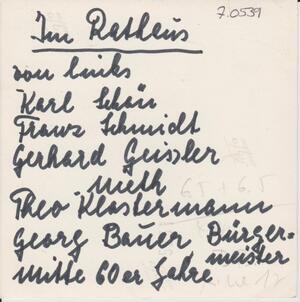 7.0539
Im Rathaus
von links
Karl Schön
Franz Schmidt
Gerhard Geissler
Mieth
65 + 6.5
Theo Klostermann
Georg Bauer Bürger=
meister
Mitte 60er Jahre